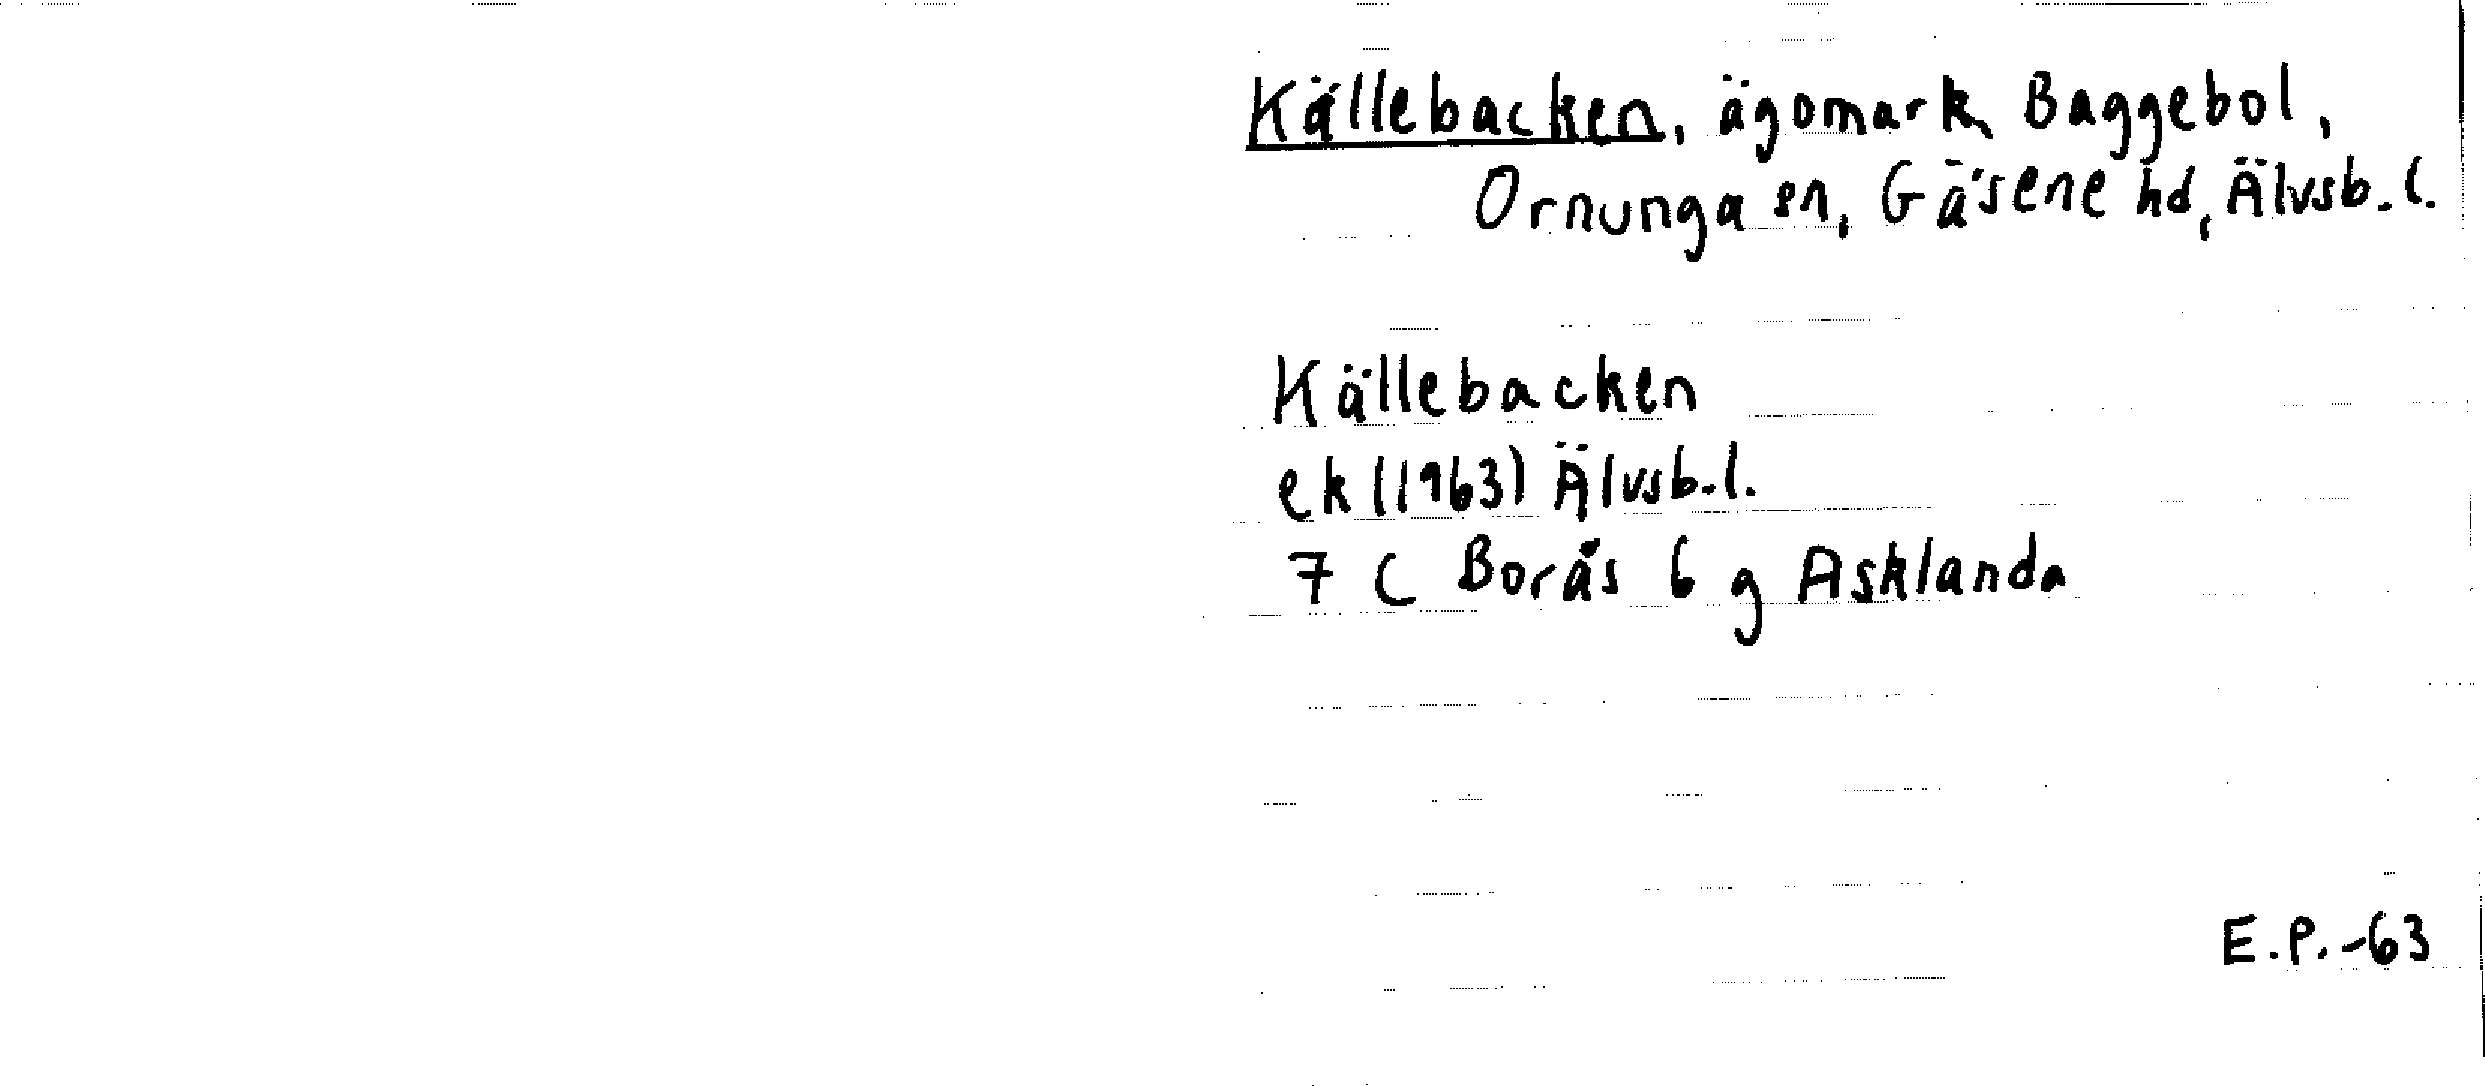 Källebacken, ägomark, Baggebol,
Ornunga sn, Gäsene hd, Älvsb. l.
Källebacken
ek (1963) Älvsb. l.
7 C Borås 6 g Asklanda
E.P.-63